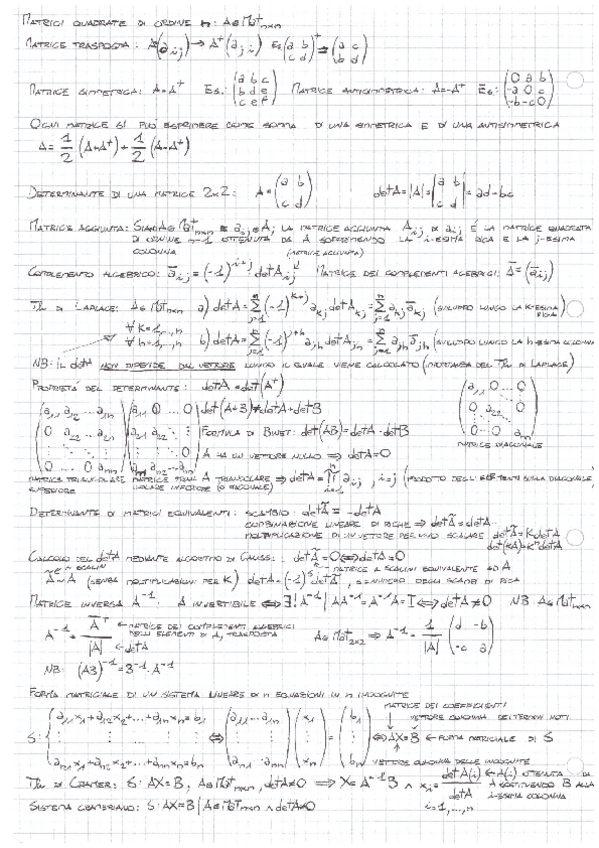 MATRICI QUADRATE DI ORDINE n: A∈Mat n×n
MATRICE TRASPOSTA: A(aij)→A⁺(aji) ES(a b c d)⁺=(a c b d)
MATRICE SIMMETRICA: A=A⁺ ES:(a b c b d e c e f) MATRICE ANTISIMMETRICA: A=-A⁺ ES:(0 a b -a 0 c -b -c 0)
OGNI MATRICE SI PUÒ ESPRIMERE COME SOMMA DI UNA SIMMETRICA E DI UNA ANTISIMMETRICA
A=1/2(A+A⁺)+1/2(A-A⁺)
DETERMINANTE DI UNA MATRICE 2x2: A=(a b c d) detA=|A|=|a b c d|=ad-bc
MATRICE AGGIUNTA: SIANO A∈Mat n×n E aij∈A; LA MATRICE AGGIUNTA Aij DI aij È LA MATRICE QUADRATA
DI ORDINE n-1 OTTENUTA DA A SOPPRIMENDO LA i-ESIMA RIGA E LA j-ESIMA
COLONNA (MATRICE AGGIUNTA)
COMPLEMENTO ALGEBRICO: āij=(-1)^i+j detAij MATRICE DEI COMPLEMENTI ALGEBRICI: Ā=(āij)
Th DI LAPLACE: A∈Mat n×n a) detA=Σ(-1)^k+j akj detAkj=Σ akj ākj (SVILUPPO LUNGO LA K-ESIMA RIGA)
∀K=1,...,n
∀h=1,...,n b) detA=Σ(-1)^j+h ajh detAjh=Σ ajh ājh (SVILUPPO LUNGO LA h-ESIMA COLONNA)
NB: IL detA NON DIPENDE DAL VETTORE LUNGO IL QUALE VIENE CALCOLATO (IMPORTANZA DEL Th DI LAPLACE)
PROPRIETÀ DEL DETERMINANTE: detA=det(A⁺)
(a11 a12 ... a1n 0 a22 ... a2n 0 ... 0 ann) (a11 0 ... 0 a21 a22 an1 an2 ... ann) det(A+B)≠detA+detB (a11 0 ... 0 0 a22 0 0 ... 0 ann)
FORMULA DI BINET: det(AB)=detA·detB
A HA UN VETTORE NULLO ⇒ detA=0
MATRICE DIAGONALE
MATRICE TRIANGOLARE SUPERIORE
MATRICE TRIANGOLARE INFERIORE (O DIAGONALE)
A TRIANGOLARE ⇒ detA=Π aij, i=j (PRODOTTO DEGLI ELEMENTI SULLA DIAGONALE)
DETERMINANTE DI MATRICI EQUIVALENTI: SCAMBIO: detÃ=-detA
COMBINAZIONE LINEARE DI RIGHE ⇒ detÃ=detA
MOLTIPLICAZIONE DI UN VETTORE PER UNO SCALARE detÃ=KdetA
det(KA)=Kⁿ detA
CALCOLO DEL detA MEDIANTE ALGORITMO DI GAUSS: detÃ=0⇔detA=0
MATRICE A SCALINI EQUIVALENTE AD A
Ã~A (SENZA MOLTIPLICAZIONI PER K) detA=(-1)^s detÃ, s=NUMERO DEGLI SCAMBI DI RIGA
MATRICE INVERSA A⁻¹: A INVERTIBILE ⇔ ∃! A⁻¹ | AA⁻¹=A⁻¹A=I ⇔ detA≠0 NB A∈Mat n×n
A⁻¹=Ā⁺/|A| ←MATRICE DEI COMPLEMENTI ALGEBRICI DEGLI ELEMENTI DI A, TRASPOSTA ←detA A∈Mat 2x2 ⇒ A⁻¹=1/|A| (d -b -c a)
NB: (AB)⁻¹=B⁻¹·A⁻¹
FORMA MATRICIALE DI UN SISTEMA LINEARE DI n EQUAZIONI IN n INCOGNITE
MATRICE DEI COEFFICIENTI
VETTORE COLONNA DEI TERMINI NOTI
S:{a11x1+a12x2+...+a1nxn=b1 an1x1+an2x2+...+annxn=bn ⇔ (a11...a1n an1...ann)(x1 xn)=(b1 bn) ⇔AX=B ← FORMA MATRICIALE DI S
VETTORE COLONNA DELLE INCOGNITE
Th DI CRAMER: S: AX=B, A∈Mat n×n, detA≠0 ⇒ X=A⁻¹B ∧ xi=detA(i)/detA ←A(i) OTTENUTA DA A SOSTITUENDO B ALLA i-ESIMA COLONNA
i=1,...,n
SISTEMA CRAMERIANO: S: AX=B | A∈Mat n×n ∧ detA≠0